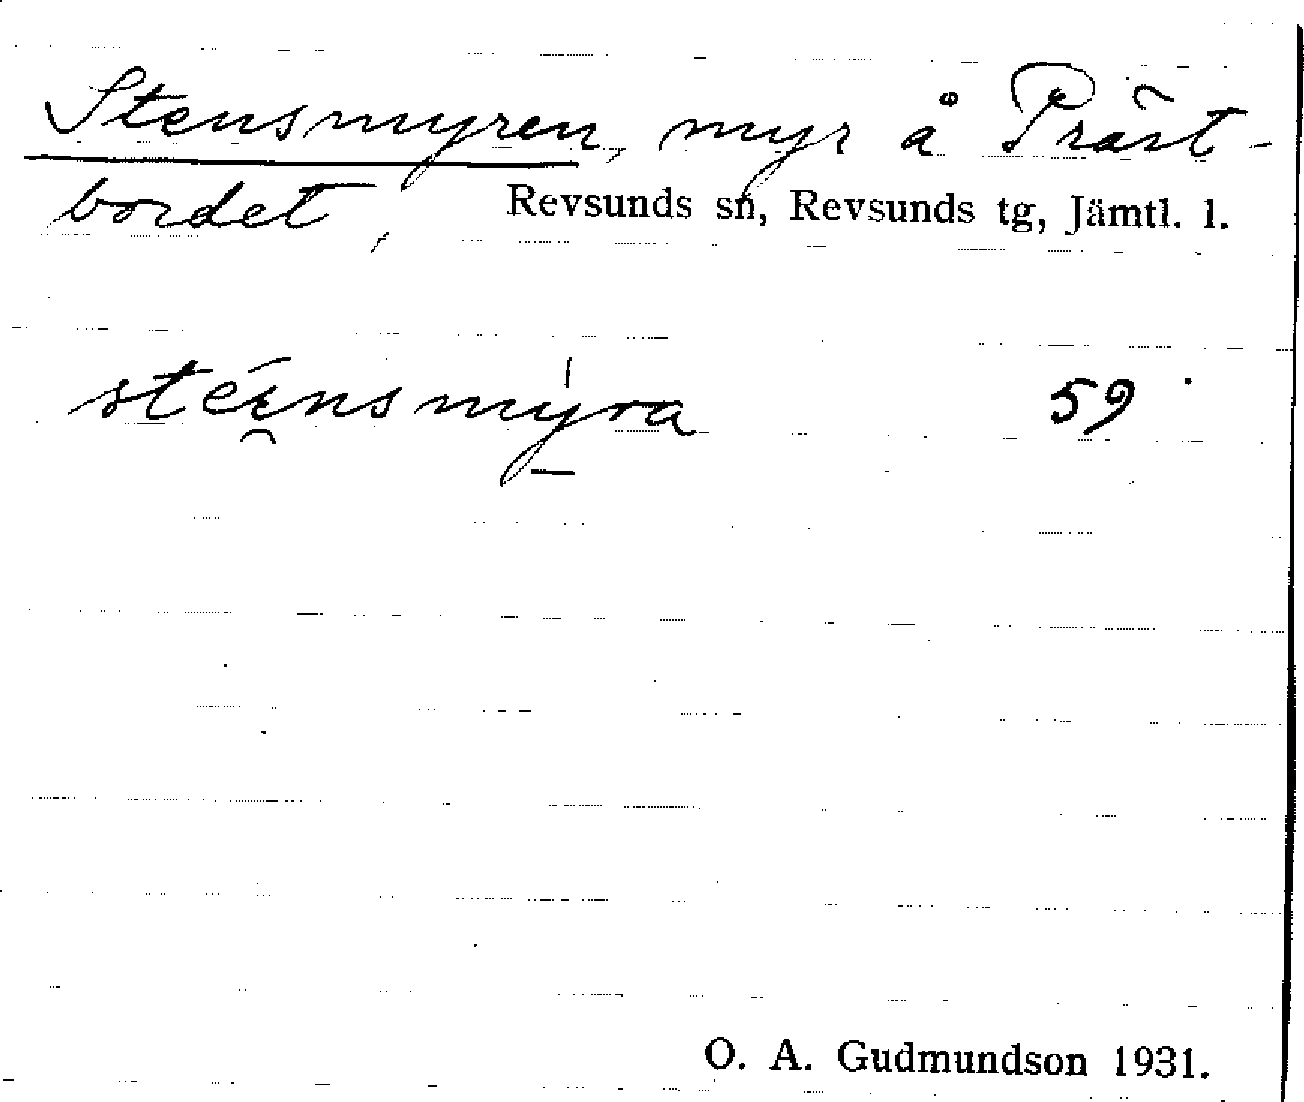 Stensmyren, myr å Präst-
bordet, Revsunds sn, Revsunds tg, Jämtl. l.
59
O. A. Gudmundson 1931.